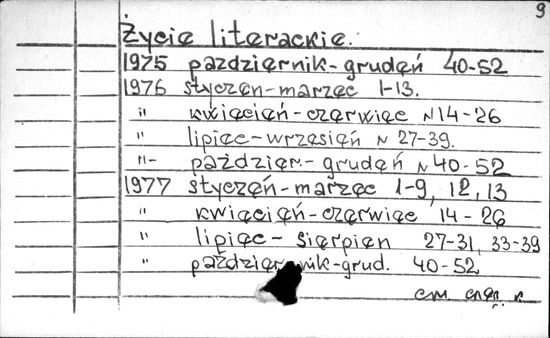 9
Życie literackie.
1975 pazdziernik-grudęń 40-52
1976 styczęn-marzec 1-13.
" kwięcięń-czerwięc N14-26
" lipiec-wrzęsięń N 27-39.
"- paździer.-grudęń N 40-52
1977 styczęń-marzęc 1-9, 12, 13
" kwięcięń-czerwięc 14-26
" lipięc-sierpien 27-31, 33-39
" paździer nik-grud. 40-52